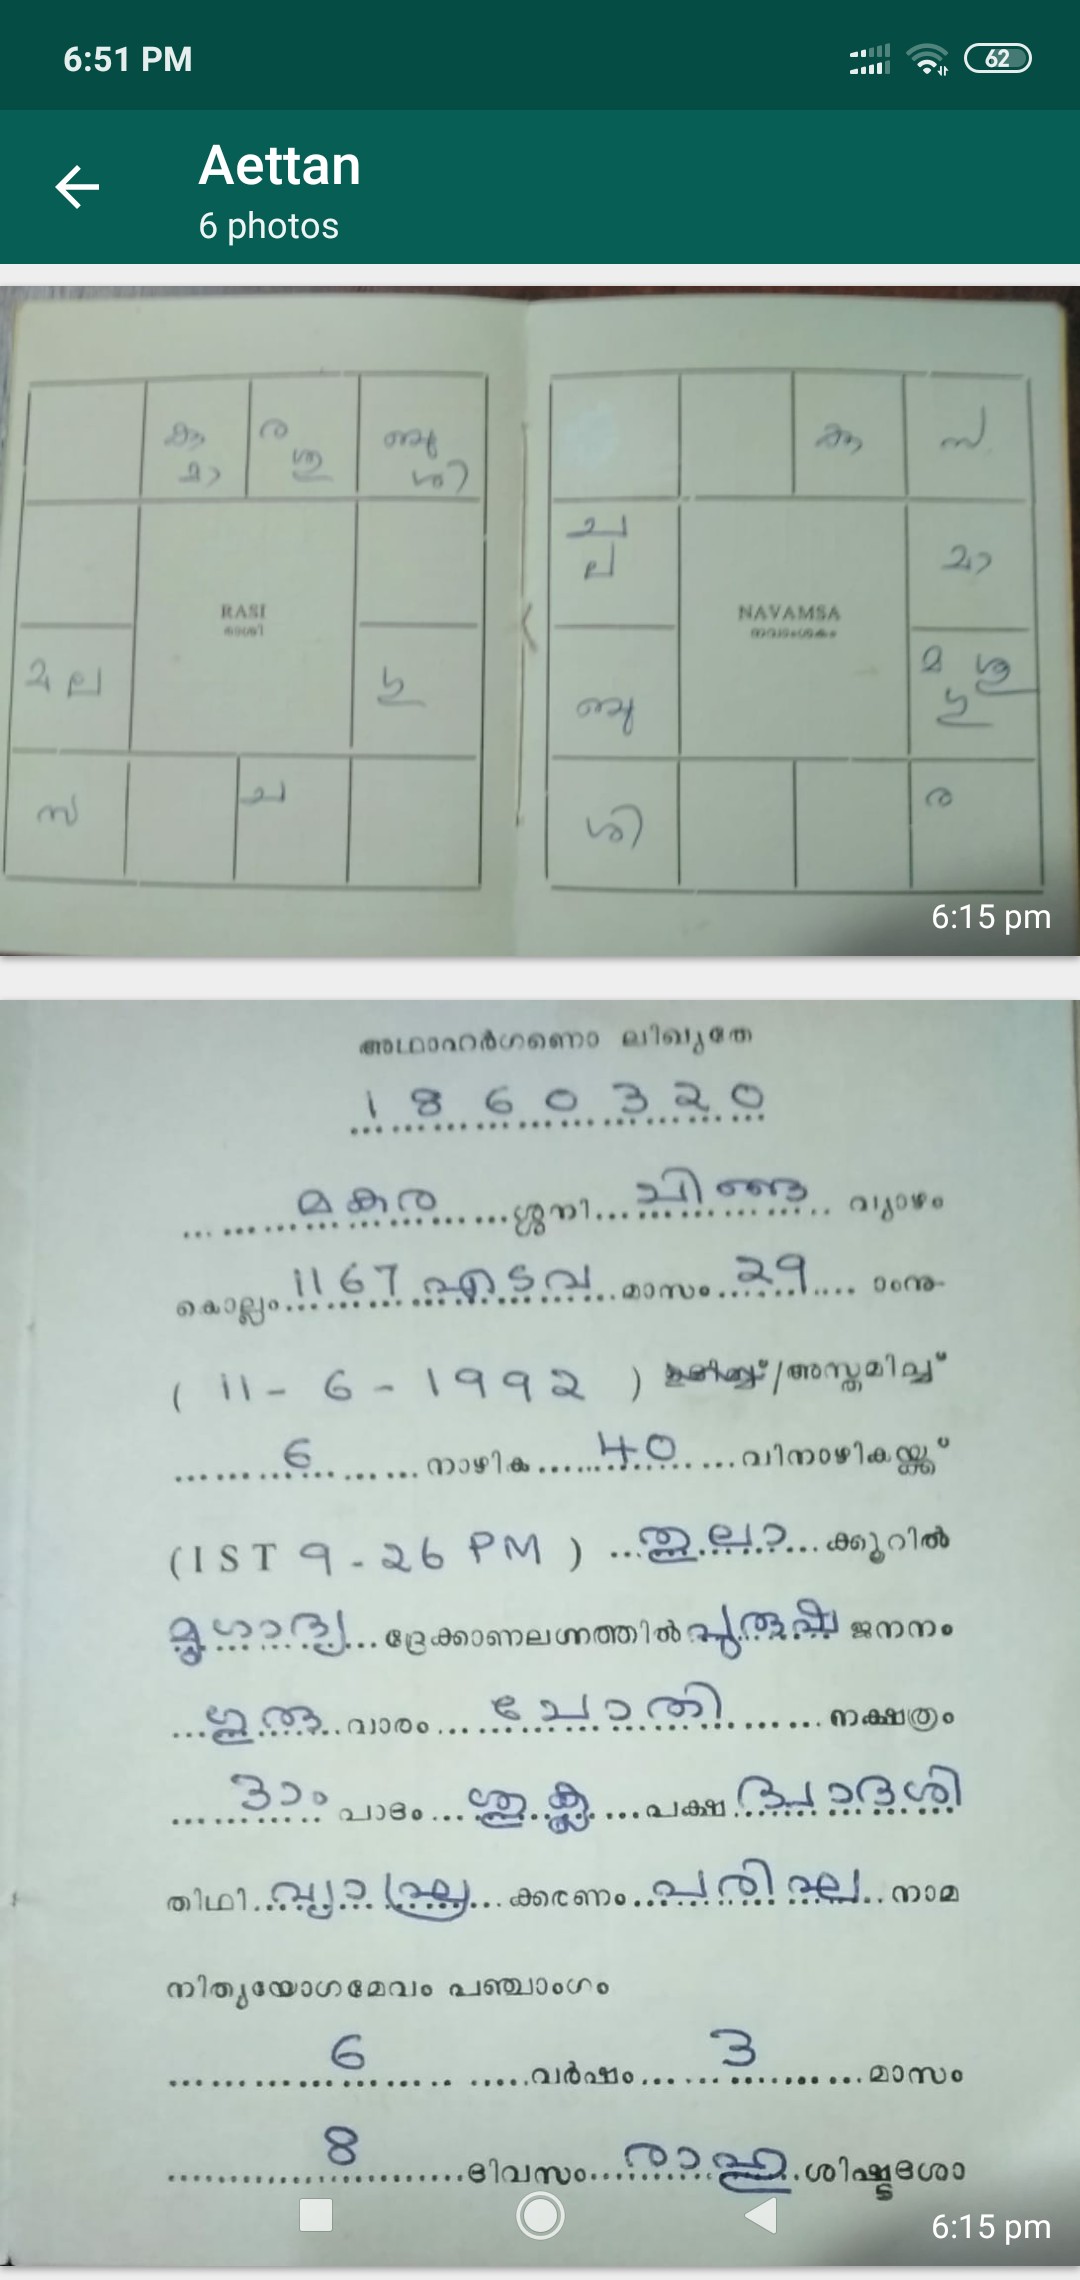 6:51 PM
62
Aettan
6 photos
കു
മാ
ര
ശു
ബു
ശി
RASI
രാശി
മ ല
ഗു
സ
ച
കു
സ
ച
ല
മാ
NAVAMSA
നവാംശകം
ബു
മ ശു
ഗു
ശി
ര
6:15 pm
അഥാഹർഗണൊ ലിഖ്യതേ
1860320
മകര ശ്ശനി ചിങ്ങ വ്യാഴം
കൊല്ലം 1167 എടവ മാസം 29 ാംനു-
( 11-6-1992 ) /അസ്തമിച്ച്
6 നാഴിക 40 വിനാഴികയ്ക്ക്
(IST 9-26 PM ) തുലാ ക്കൂറിൽ
മൃഗാദ്യ ദ്രേക്കാണലഗ്നത്തിൽ പുരുഷ ജനനം
ഗുരു വാരം ചോതി നക്ഷത്രം
3ാം പാദം ശുക്ല പക്ഷ ദ്വാദശി
തിഥി വ്യാഘ്ര ക്കരണം പരിഘ നാമ
നിത്യയോഗമേവം പഞ്ചാംഗം
6 വർഷം 3 മാസം
8 ദിവസം രാഹു ശിഷ്ടദശാ
6:15 pm